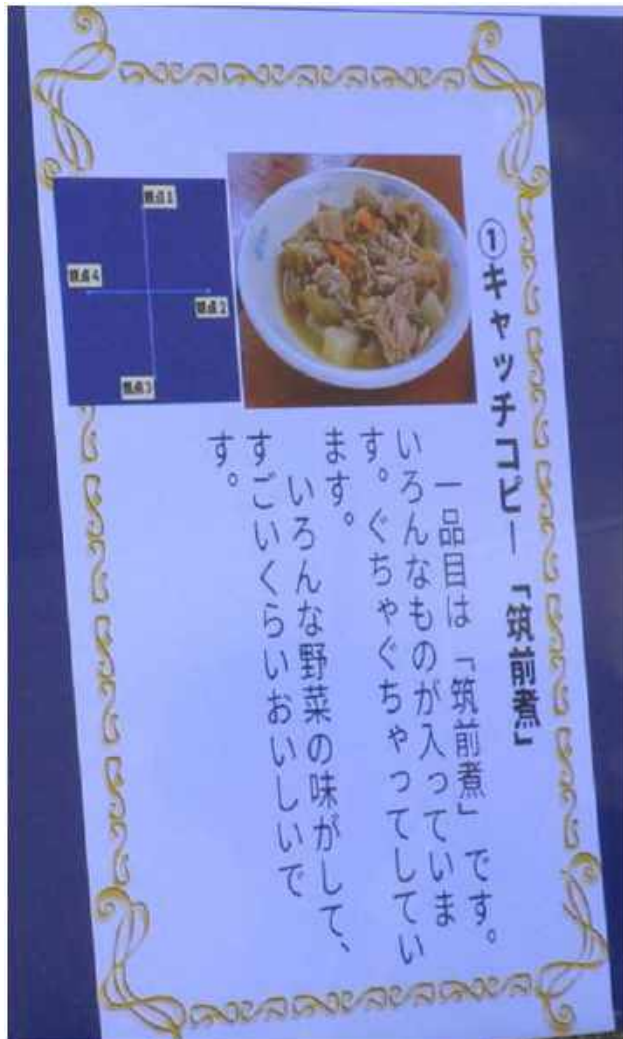 ①キャッチコピー「筑前煮」
一品目は「筑前煮」です。
いろんなものが入っていま
す。ぐちゃぐちゃってしてい
ます。
いろんな野菜の味がして、
すごいくらいおいしいで
す。
観点1
観点2
観点3
観点4